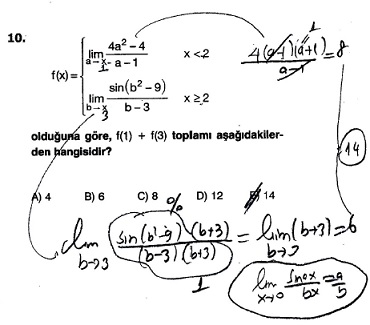 10.
f(x)= { lim a→x 4a²-4 / a-1   x<2   1   4(a-1)(a+1) / a-1 =8
1
lim b→x sin(b²-9) / b-3   x≥2
3
olduğuna göre, f(1) + f(3) toplamı aşağıdakiler-
den hangisidir?
14
A) 4 B) 6 C) 8 D) 12 E) 14
%
lim b→3 sin(b²-9) (b+3) / (b-3) (b+3) = lim b→3 (b+3)=6
1
lim x→0 sin ax / bx = a / b